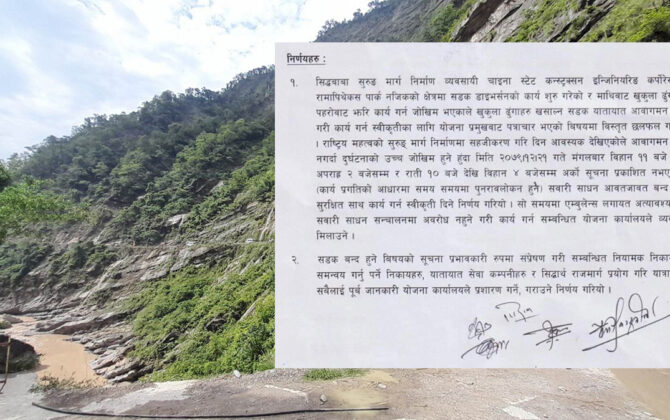 निर्णयहरु :
१. सिद्धबाबा सुरुङ मार्ग निर्माण व्यवसायी चाइना स्टेट कन्स्ट्रक्सन इन्जिनियरिङ कर्पोरे
रामापिथेकस पार्क नजिकको क्षेत्रमा सडक डाइभर्सनको कार्य शुरु गरेको र माथिबाट खुकुला ढुं
पहरोबाट झरि कार्य गर्न जोखिम भएकाले खुकुला ढुंगाहरु खसाल्न सडक यातायात आवागमन
गरी कार्य गर्न स्वीकृतीका लागि योजना प्रमुखबाट पत्राचार भएको बिषयमा विस्तृत छलफल ग
। राष्ट्रिय महत्वको सुरुङ् मार्ग निर्माणमा सहजीकरण गरि दिन आवश्यक देखिएकोले आवागमन
नगर्दा दुर्घटनाको उच्च जोखिम हुने हुंदा मिति २०७९।१२।२१ गते मंगलबार विहान ११ बजे
अपराह्न २ बजेसम्म र राती १० बजे देखि विहान ४ बजेसम्म अर्को सूचना प्रकाशित नभए
(कार्य प्रगतिको आधारमा समय समयमा पुनरावलोकन हुने) सवारी साधन आवतजावत बन्द
सुरक्षित साथ कार्य गर्न स्वीकृती दिने निर्णय गरियो । सो समयमा एम्बुलेन्स लगायत अत्यावश्य
सवारी साधन सन्चालनमा अवरोध नहुने गरी कार्य गर्न सम्बन्धित योजना कार्यालयले व्य
मिलाउने ।
२. सडक बन्द हुने बिषयको सूचना प्रभावकारी रुपमा संप्रेषण गरी सम्बन्धित नियामक निका
समन्वय गर्नु पर्ने निकायहरु, यातायात सेवा कम्पनीहरु र सिद्धार्थ राजमार्ग प्रयोग गरि यात्रा
सबैलाई पूर्व जानकारी योजना कार्यालयले प्रशारण गर्ने, गराउने निर्णय गरियो ।